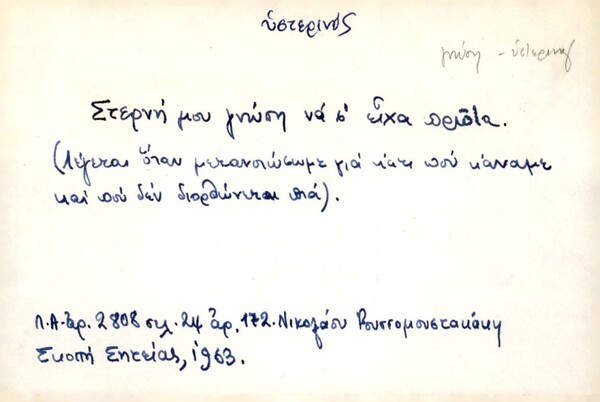 ὑστερινός
γνώση - ὑστερινός
Στερνή μου γνώση νά σ' εἶχα πρῶτα.
(Λέγεται ὅταν μετανοιώσωμε γιά κάτι πού κάναμε
καί πού δέν διορθώνεται πιά).
Λ.Α. ἀρ. 2808 σελ. 24 ἀρ. 172. Νικολάου Ρουσσομουστακάκη
Σκοπή Σητείας, 1963.